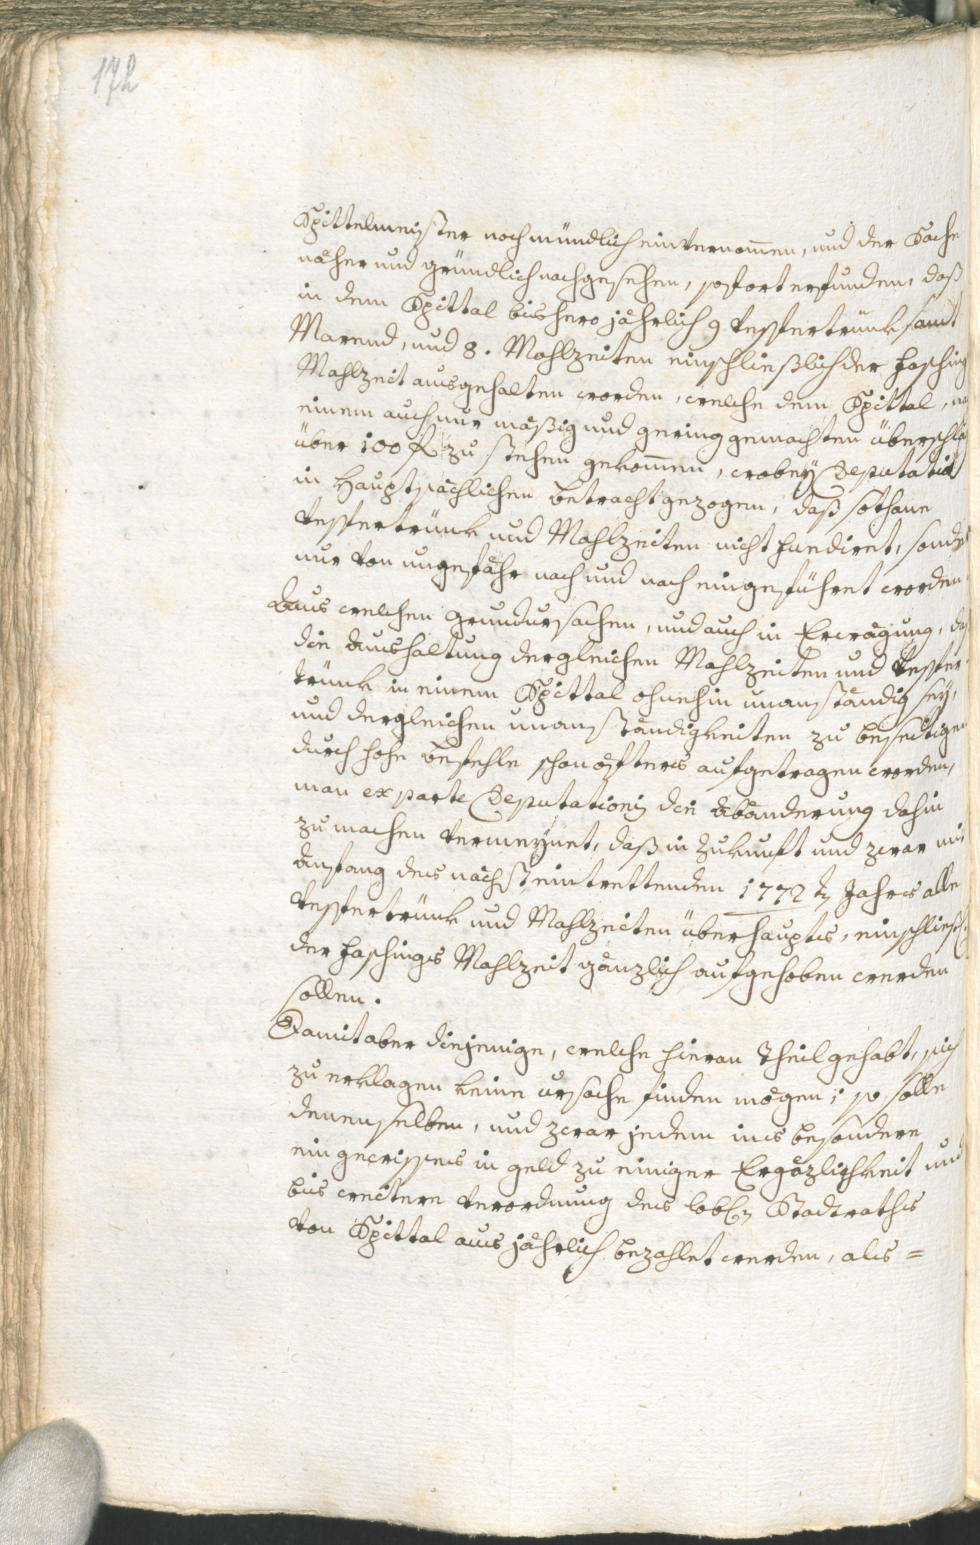 172
Spittelmeister noch mündlich einvernom̄en, und der Sache
näher und gründlich nachgesehen, sofort erfunden, daß
in dem Spittal bishero jährlich 9 Vespertrünk samt
Marend, und 8. Mahlzeiten einschließlich der Fasching
Mahlzeit ausgehalten worden, welche dem Spittal,
einem auch nur mäßig und gering gemachten überschla
über 100 f zu stehen gekom̄en, wobey Deputatio
in Hauptsächlichen betracht gezogen, daß sothane
Vespertrünk und Mahlzeiten nicht fundiret, sonder
nur von ungefähr nach und nach eingeführet worden
Aus welchen grundursachen, und auch in Erwägung, daß
die Aushaltung dergleichen Mahlzeiten und Vesper
trünk in einem Spittal ohnehin unanständig sey,
und dergleichen unanständigkeiten zu beseitigen
durch hohe befehle schon öfters aufgetragen worden,
man ex parte Deputationis die Abänderung dahin
zu machen vermeynet, daß in Zukunft und zwar mit
Anfang des nächst eintrettenden 1772 ts Jahrs alle
Vespertrünk und Mahlzeiten überhaupts, einschließl:
der Faschings Mahlzeit gänzlich aufgehoben werden
sollen.
Damit aber diejenige, welche hieran Theil gehabt, sich
zu erklagen keine ursache finden mögen; so solle
denenselben, und zwar jedem ins besondere
ein gewisses in geld zu einiger Ergözlichkeit und
bis weitere Verordnung des lobl: Stadtraths
von Spittal aus jährlich bezahlet werden, als =